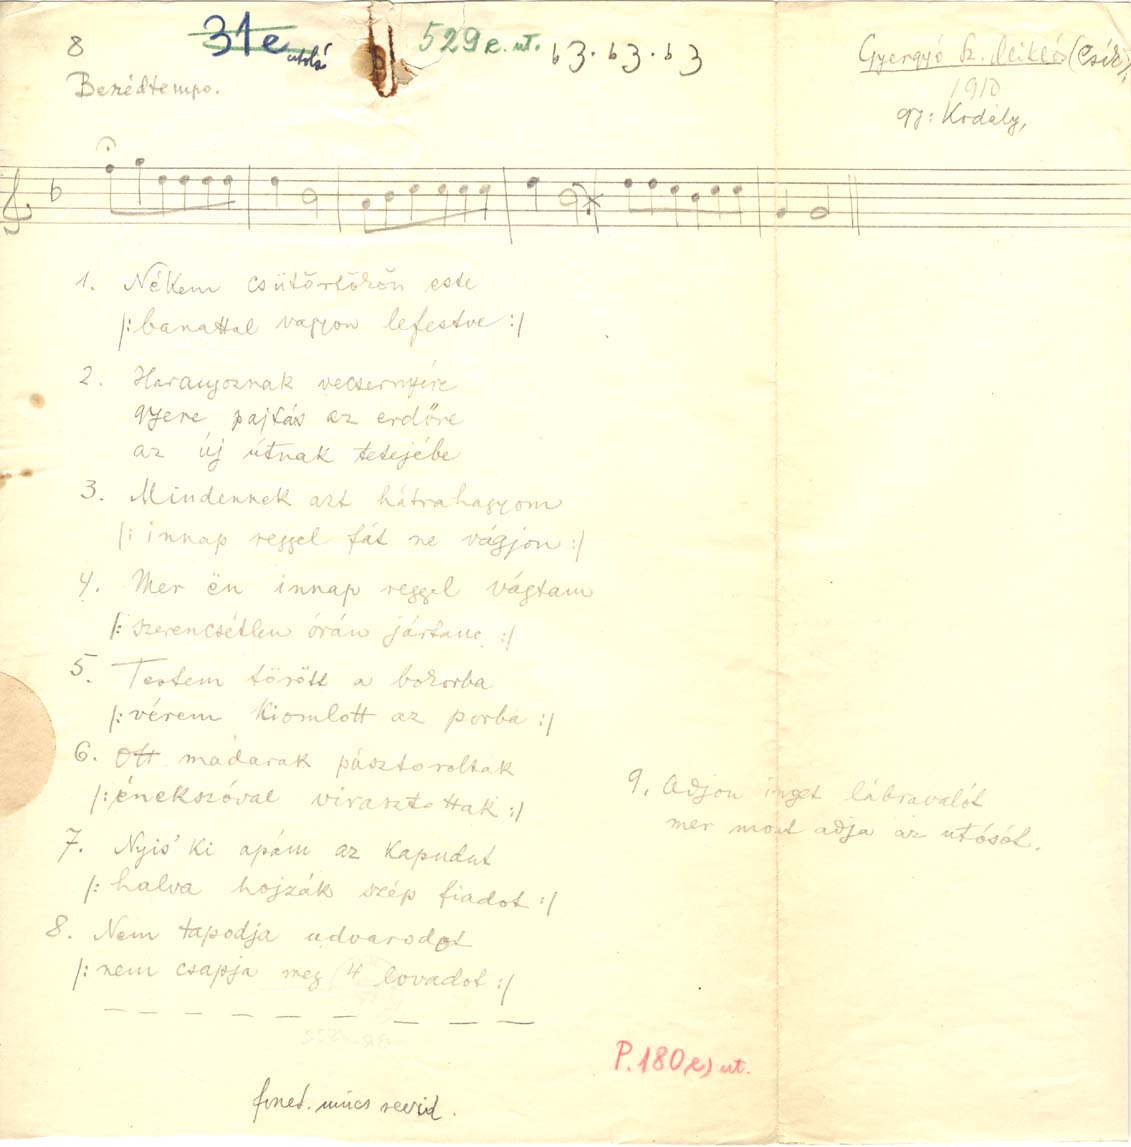 8
31e utolsó
529 e. ut.
b3. b3. b3
Gyergyó Sz. Miklós (Csík)
1910
gy: Kodály,
Beszédtempo.
1. Nékem csütörtökön este
/: banattal vagyon lefestve :/
2. Harangoznak vecsernyére
gyere pajtás az erdőre
az új útnak tetejébe
3. Mindennek azt hátrahagyom
/: innap reggel fát ne vágjon :/
4. Mer ën innap reggel vágtam
/: szerencsétlen órán jártam :/
5. Testem törött a bokorba
/: vérem kiomlott az porba :/
6. Ott madarak pásztoroltak
/: énekszóval virasztottak :/
7. Nyis' ki apám az kapudot
/: halva hojzák szép fiadot :/
8. Nem tapodja udvarodot
/: nem csapja meg 4 lovadot :/
9. Adjon inget lábravalót
mer most adja az utósót.
P. 180 e) ut.
foned. nincs revid.